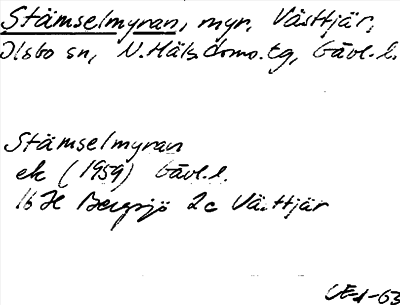 Stämselmyran, myr, Västtjär,
Ilsbo sn, N.Häls. doms.tg, Gävl.l.
Stämselmyran
ek (1959) Gävl.l.
16H Bergsjö 2c Västtjär